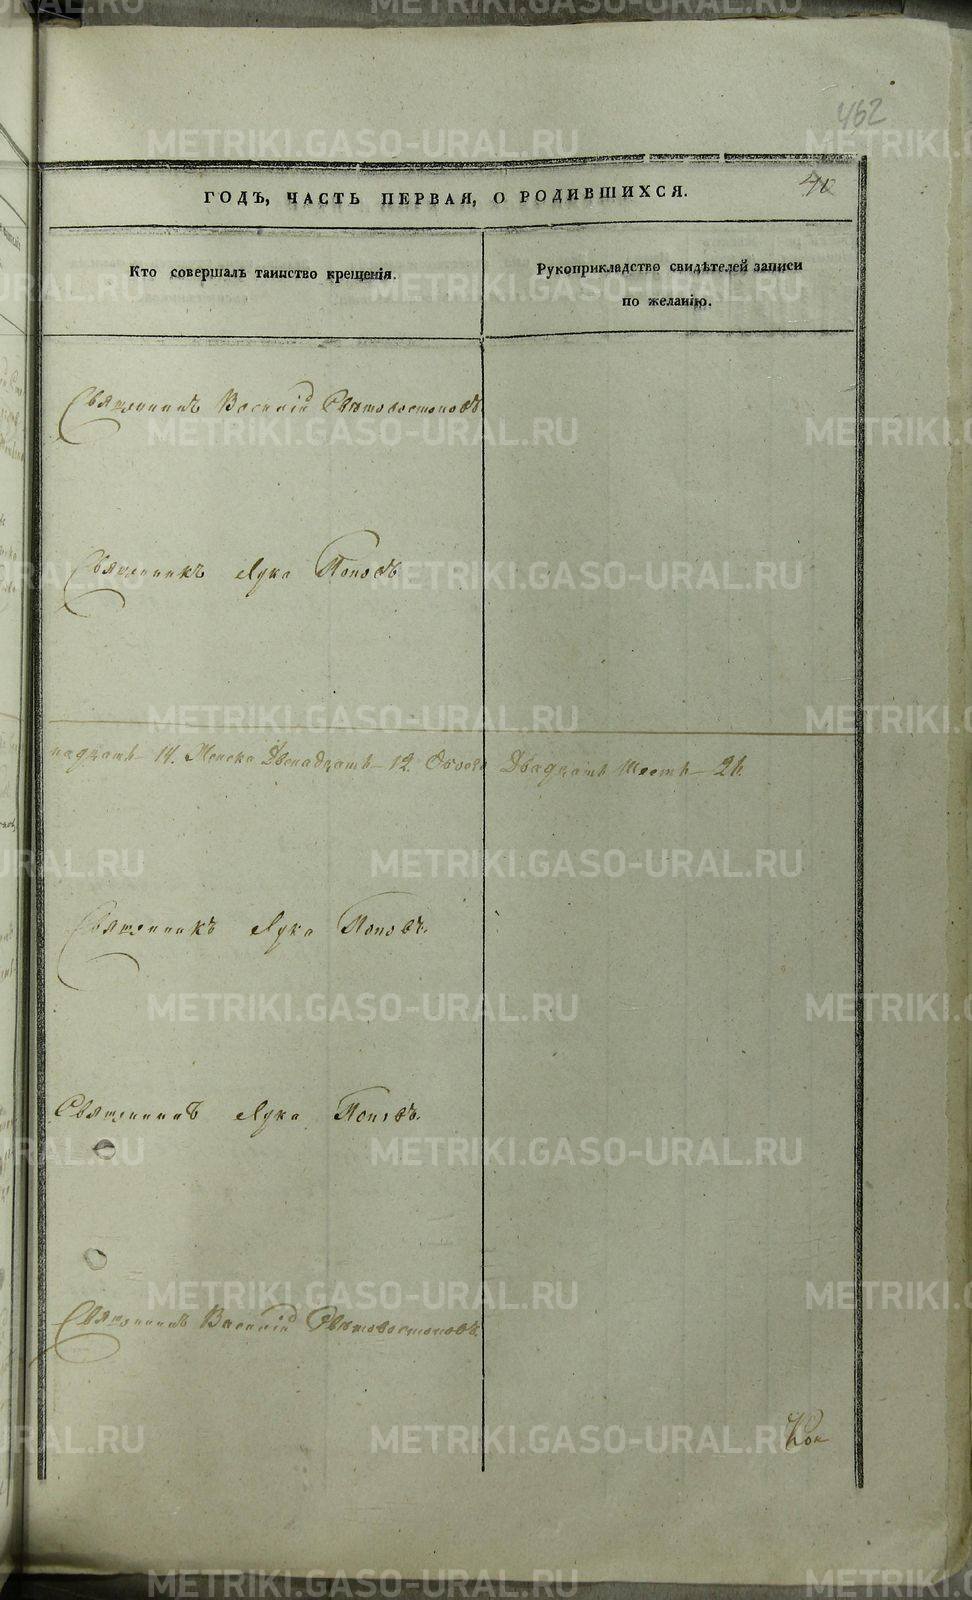 462
40
ГОДЪ, ЧАСТЬ ПЕРВАЯ, О РОДИВШИХСЯ.
Кто совершалъ таинство крещенія.
Рукоприкладство свидѣтелей записи
по желанію.
Священникъ Василій Свѣтовостоковъ.
Священникъ Лука Поповъ
надцать 14. Женска Двенадцать 12. Обоего Двадцать Шесть 26.
Священникъ Лука Поповъ.
Священникъ Лука Поповъ.
Священникъ Василій Свѣтовостоковъ.
METRIKI.GASO-URAL.RU